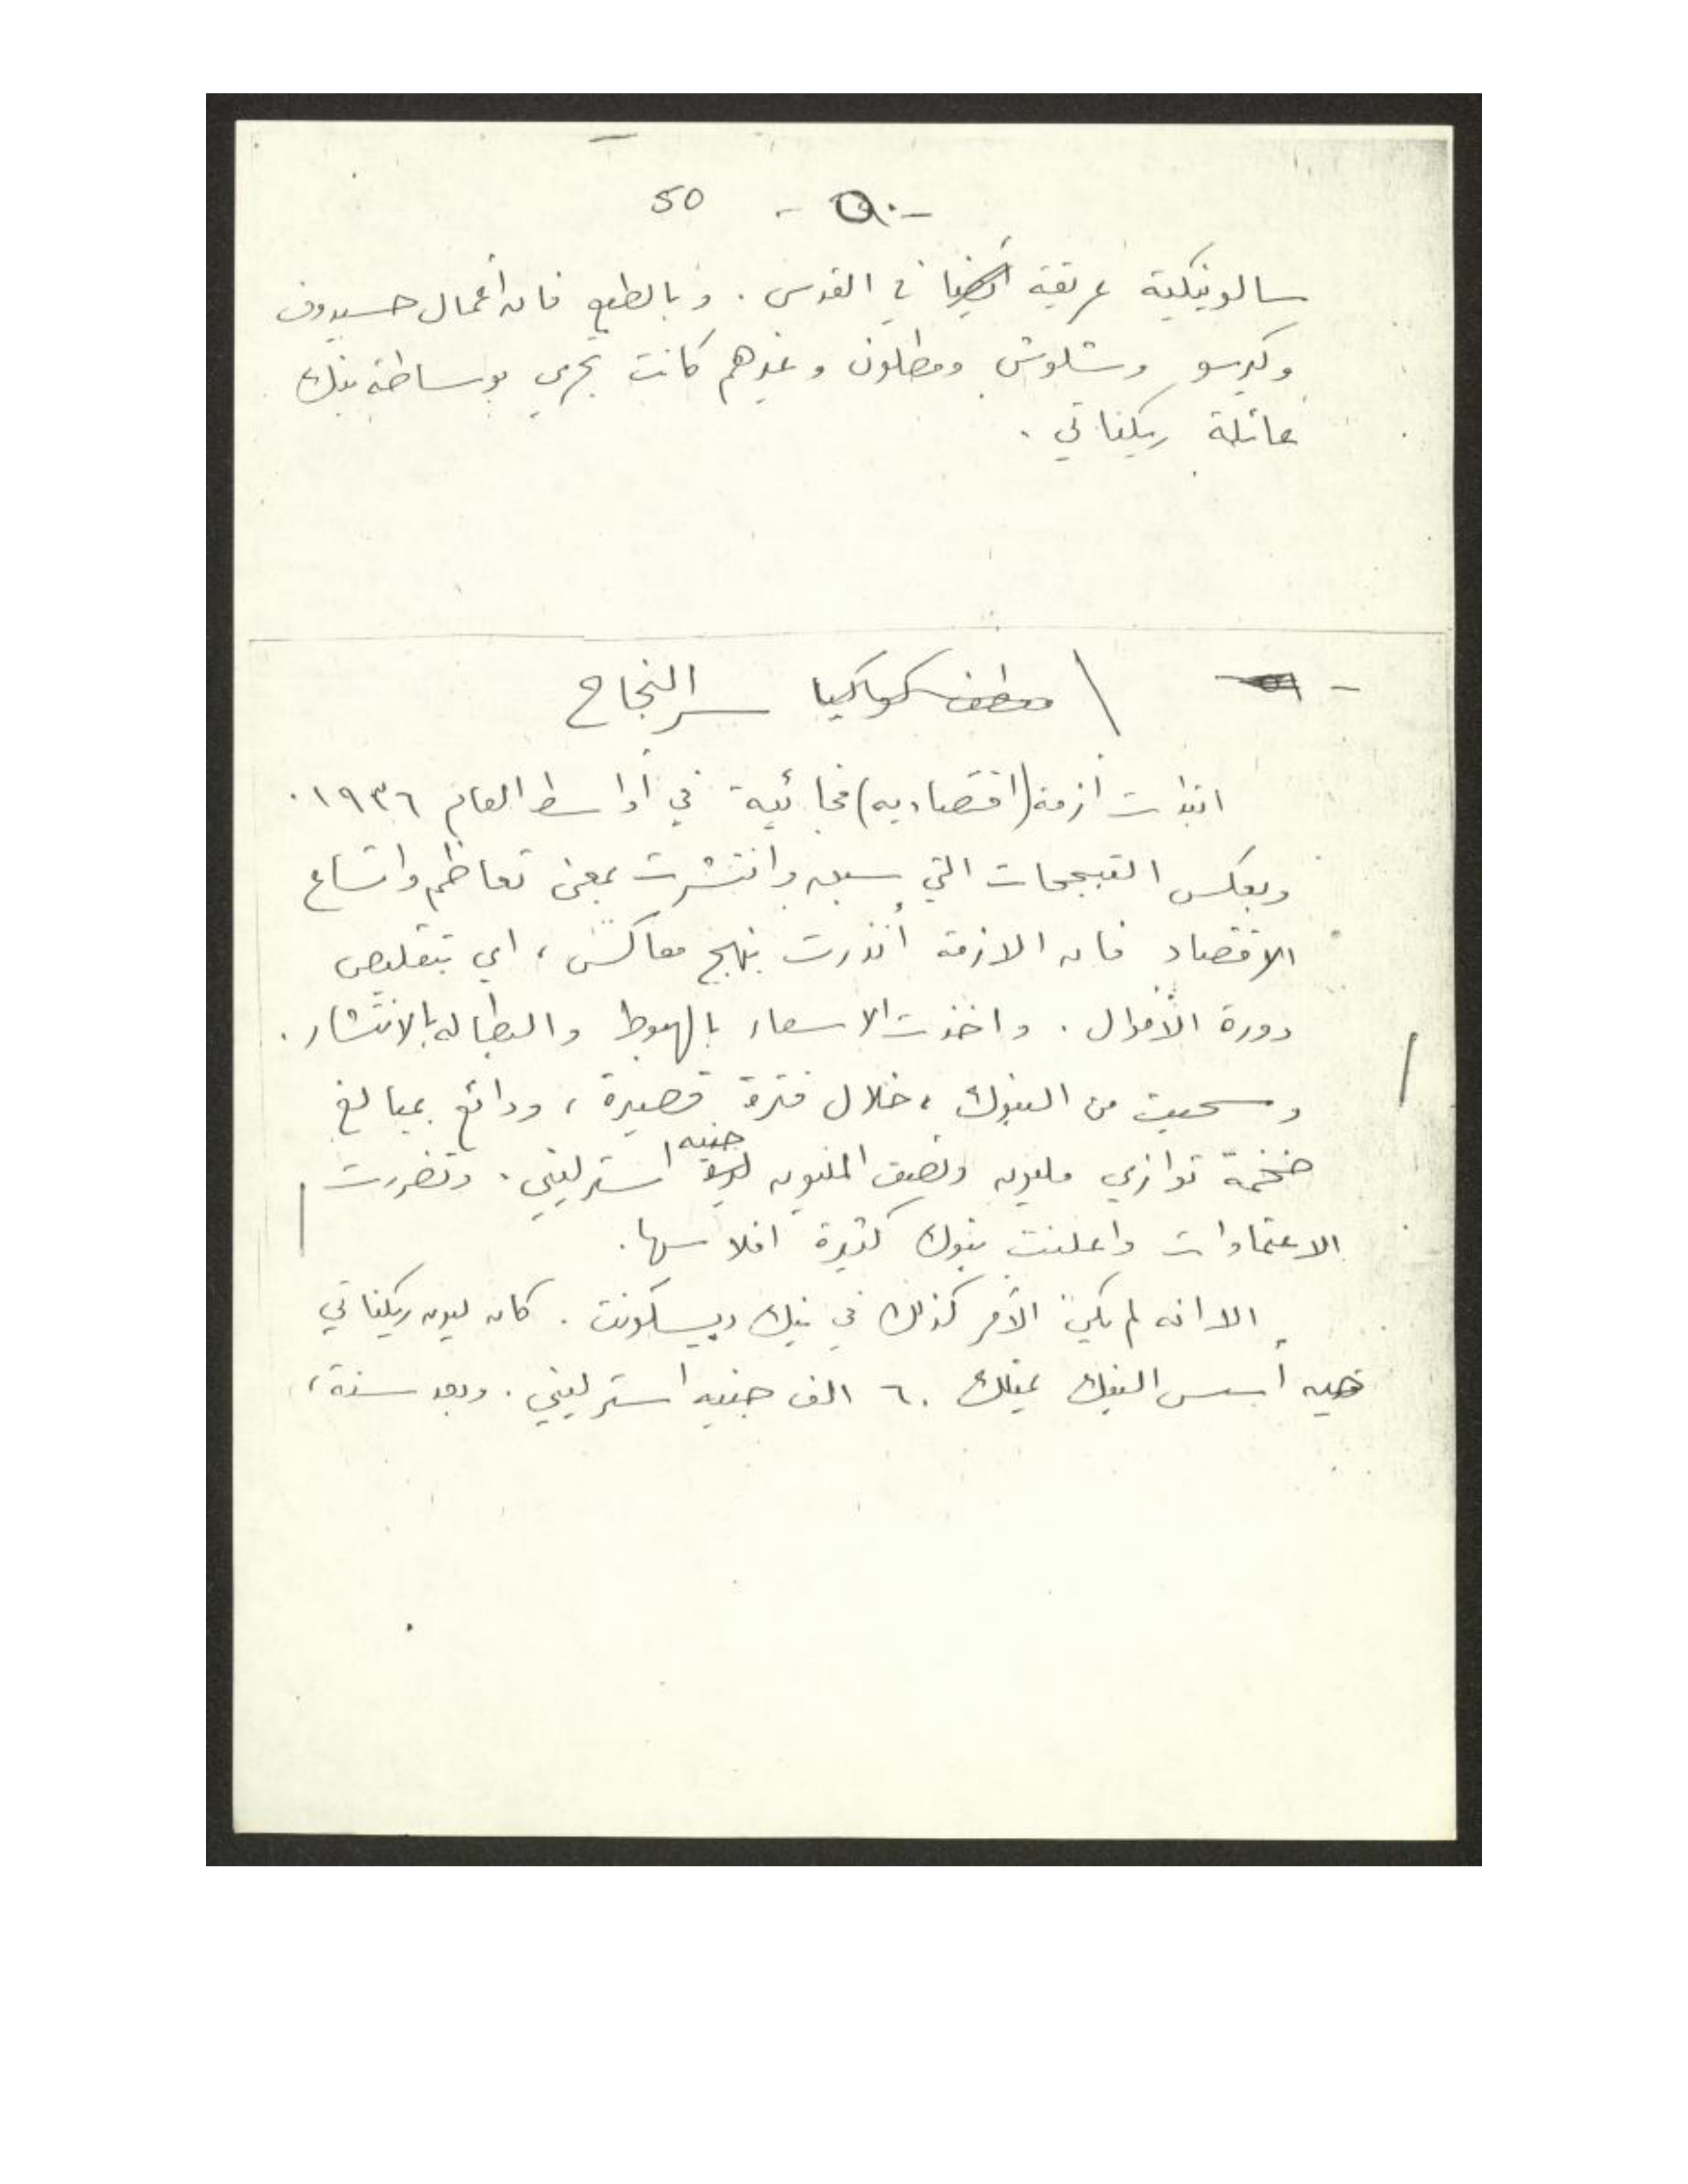 50 - ٥٠ -
سالونيكية عريقة أيضا في القدس. وبالطبع فان أعمال حسيدوف
وكرسو وشلوش ومطلون وغيرهم كانت تجري بوساطة بنك
عائلة ريكناتي.
سر النجاح
ابتدات أزمة (اقتصاديه) فجائية في أواسط العام ١٩٣٦.
وبعكس التبجحات التي وانتشرت بمعنى تعاظم واتساع
الاقتصاد فان الازمة أنذرت بنهج معاكس، اي بتقليص
دورة الأموال. واخذت الاسعار بالهبوط والبطاله بالانتشار.
وسحبت من البنوك، خلال فترة قصيرة، ودائع بمبالغ
ضخمة توازي مليون ونصف المليون جنيه استرليني. وتضررت
الاعتمادات واعلنت بنوك كثيرة افلاسها.
الا انه لم يكن الأمر كذلك في بنك ديسكونت. كان ليون ريكناتي
حين أسس البنك يملك ٦٠ الف جنيه استرليني. وبعد سنة،